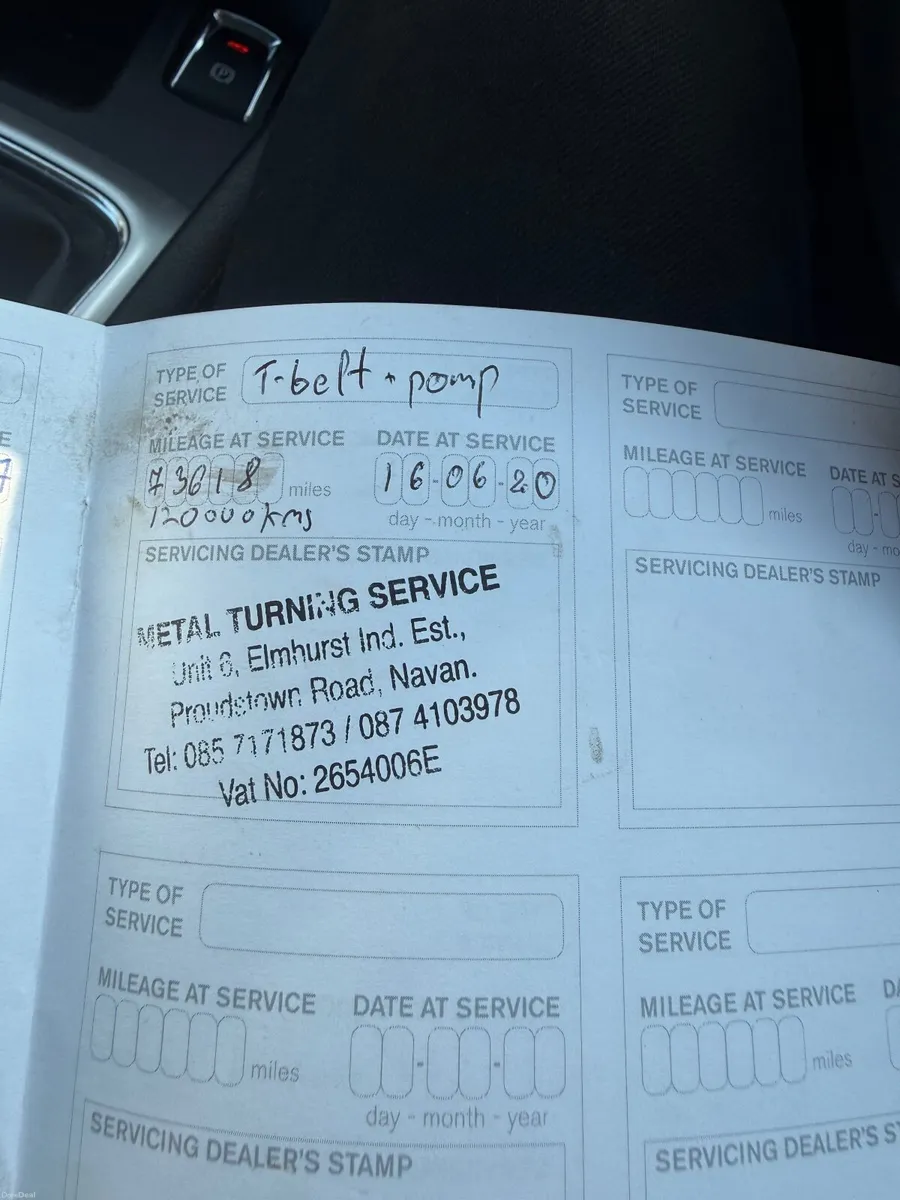 TYPE OF SERVICE T-belt + pomp
MILEAGE AT SERVICE DATE AT SERVICE
73618 miles 16-06-20
120000kms day - month - year
SERVICING DEALER'S STAMP
METAL TURNING SERVICE
Unit 6, Elmhurst Ind. Est.,
Proudstown Road, Navan.
Tel: 085 7171873 / 087 4103978
Vat No: 2654006E
TYPE OF SERVICE
MILEAGE AT SERVICE DATE AT S
miles
day - mo
SERVICING DEALER'S STAMP
TYPE OF SERVICE
MILEAGE AT SERVICE DATE AT SERVICE
miles
day - month - year
SERVICING DEALER'S STAMP
TYPE OF SERVICE
MILEAGE AT SERVICE DA
miles
SERVICING DEALER'S ST
E
7
DoneDeal